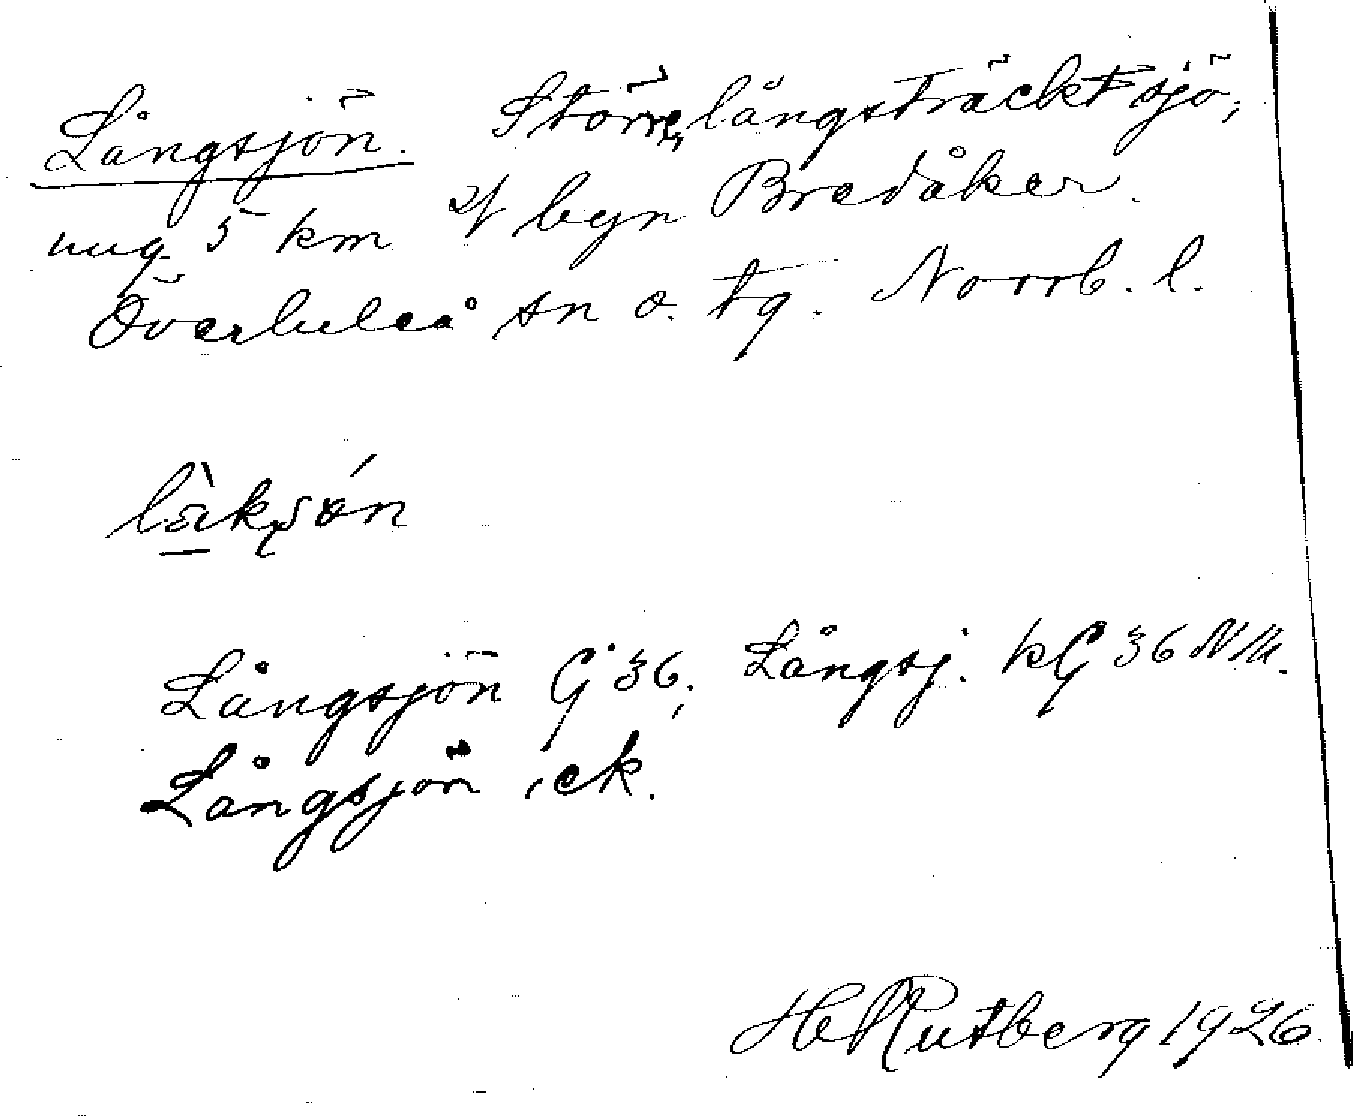 Långsjön. Större, långsträckt sjö,
ung. 5 km byn Bredåker.
Överluleå sn o. tg. Norrb. l.
Långsjön G 36; Långsj. kG 36 NM.
Långsjön, ek.
H Rutberg 1926.